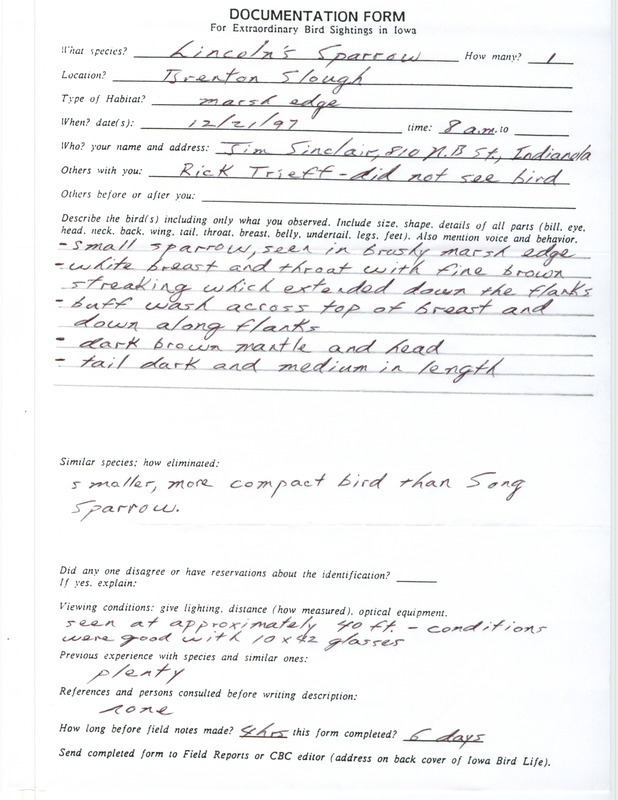 DOCUMENTATION FORM
For Extraordinary Bird Sightings in Iowa
What species? Lincoln's Sparrow How many? 1
Location? Brenton Slough
Type of Habitat? marsh edge
When? date(s): 12/21/97 time: 8 a.m. to
Who? your name and address: Jim Sinclair, 810 N. B St., Indianola
Others with you: Rick Trieff - did not see bird
Others before or after you:
Describe the bird(s) including only what you observed. Include size, shape, details of all parts (bill, eye,
head, neck, back, wing, tail, throat, breast, belly, undertail, legs, feet). Also mention voice and behavior.
- small sparrow, seen in brushy marsh edge
- white breast and throat with fine brown
streaking which extended down the flanks
- buff wash across top of breast and
down along flanks
- dark brown mantle and head
- tail dark and medium in length
Similar species; how eliminated:
smaller, more compact bird than Song
Sparrow.
Did any one disagree or have reservations about the identification?
If yes, explain:
Viewing conditions: give lighting, distance (how measured), optical equipment.
seen at approximately 40 ft. - conditions
were good with 10 x 42 glasses
Previous experience with species and similar ones:
plenty
References and persons consulted before writing description:
none
How long before field notes made? 4 hrs this form completed? 6 days
Send completed form to Field Reports or CBC editor (address on back cover of Iowa Bird Life).